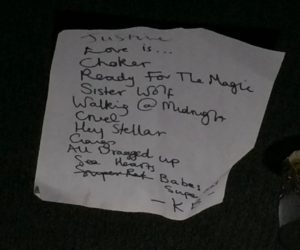 Justine
Love is...
Choker
Ready For The Magic
Sister Wolf
Walking @ Midnight
Cruel
Hey Stellar
All Dragged up
Sea Hearts
Super Rat Babes
Super
- K